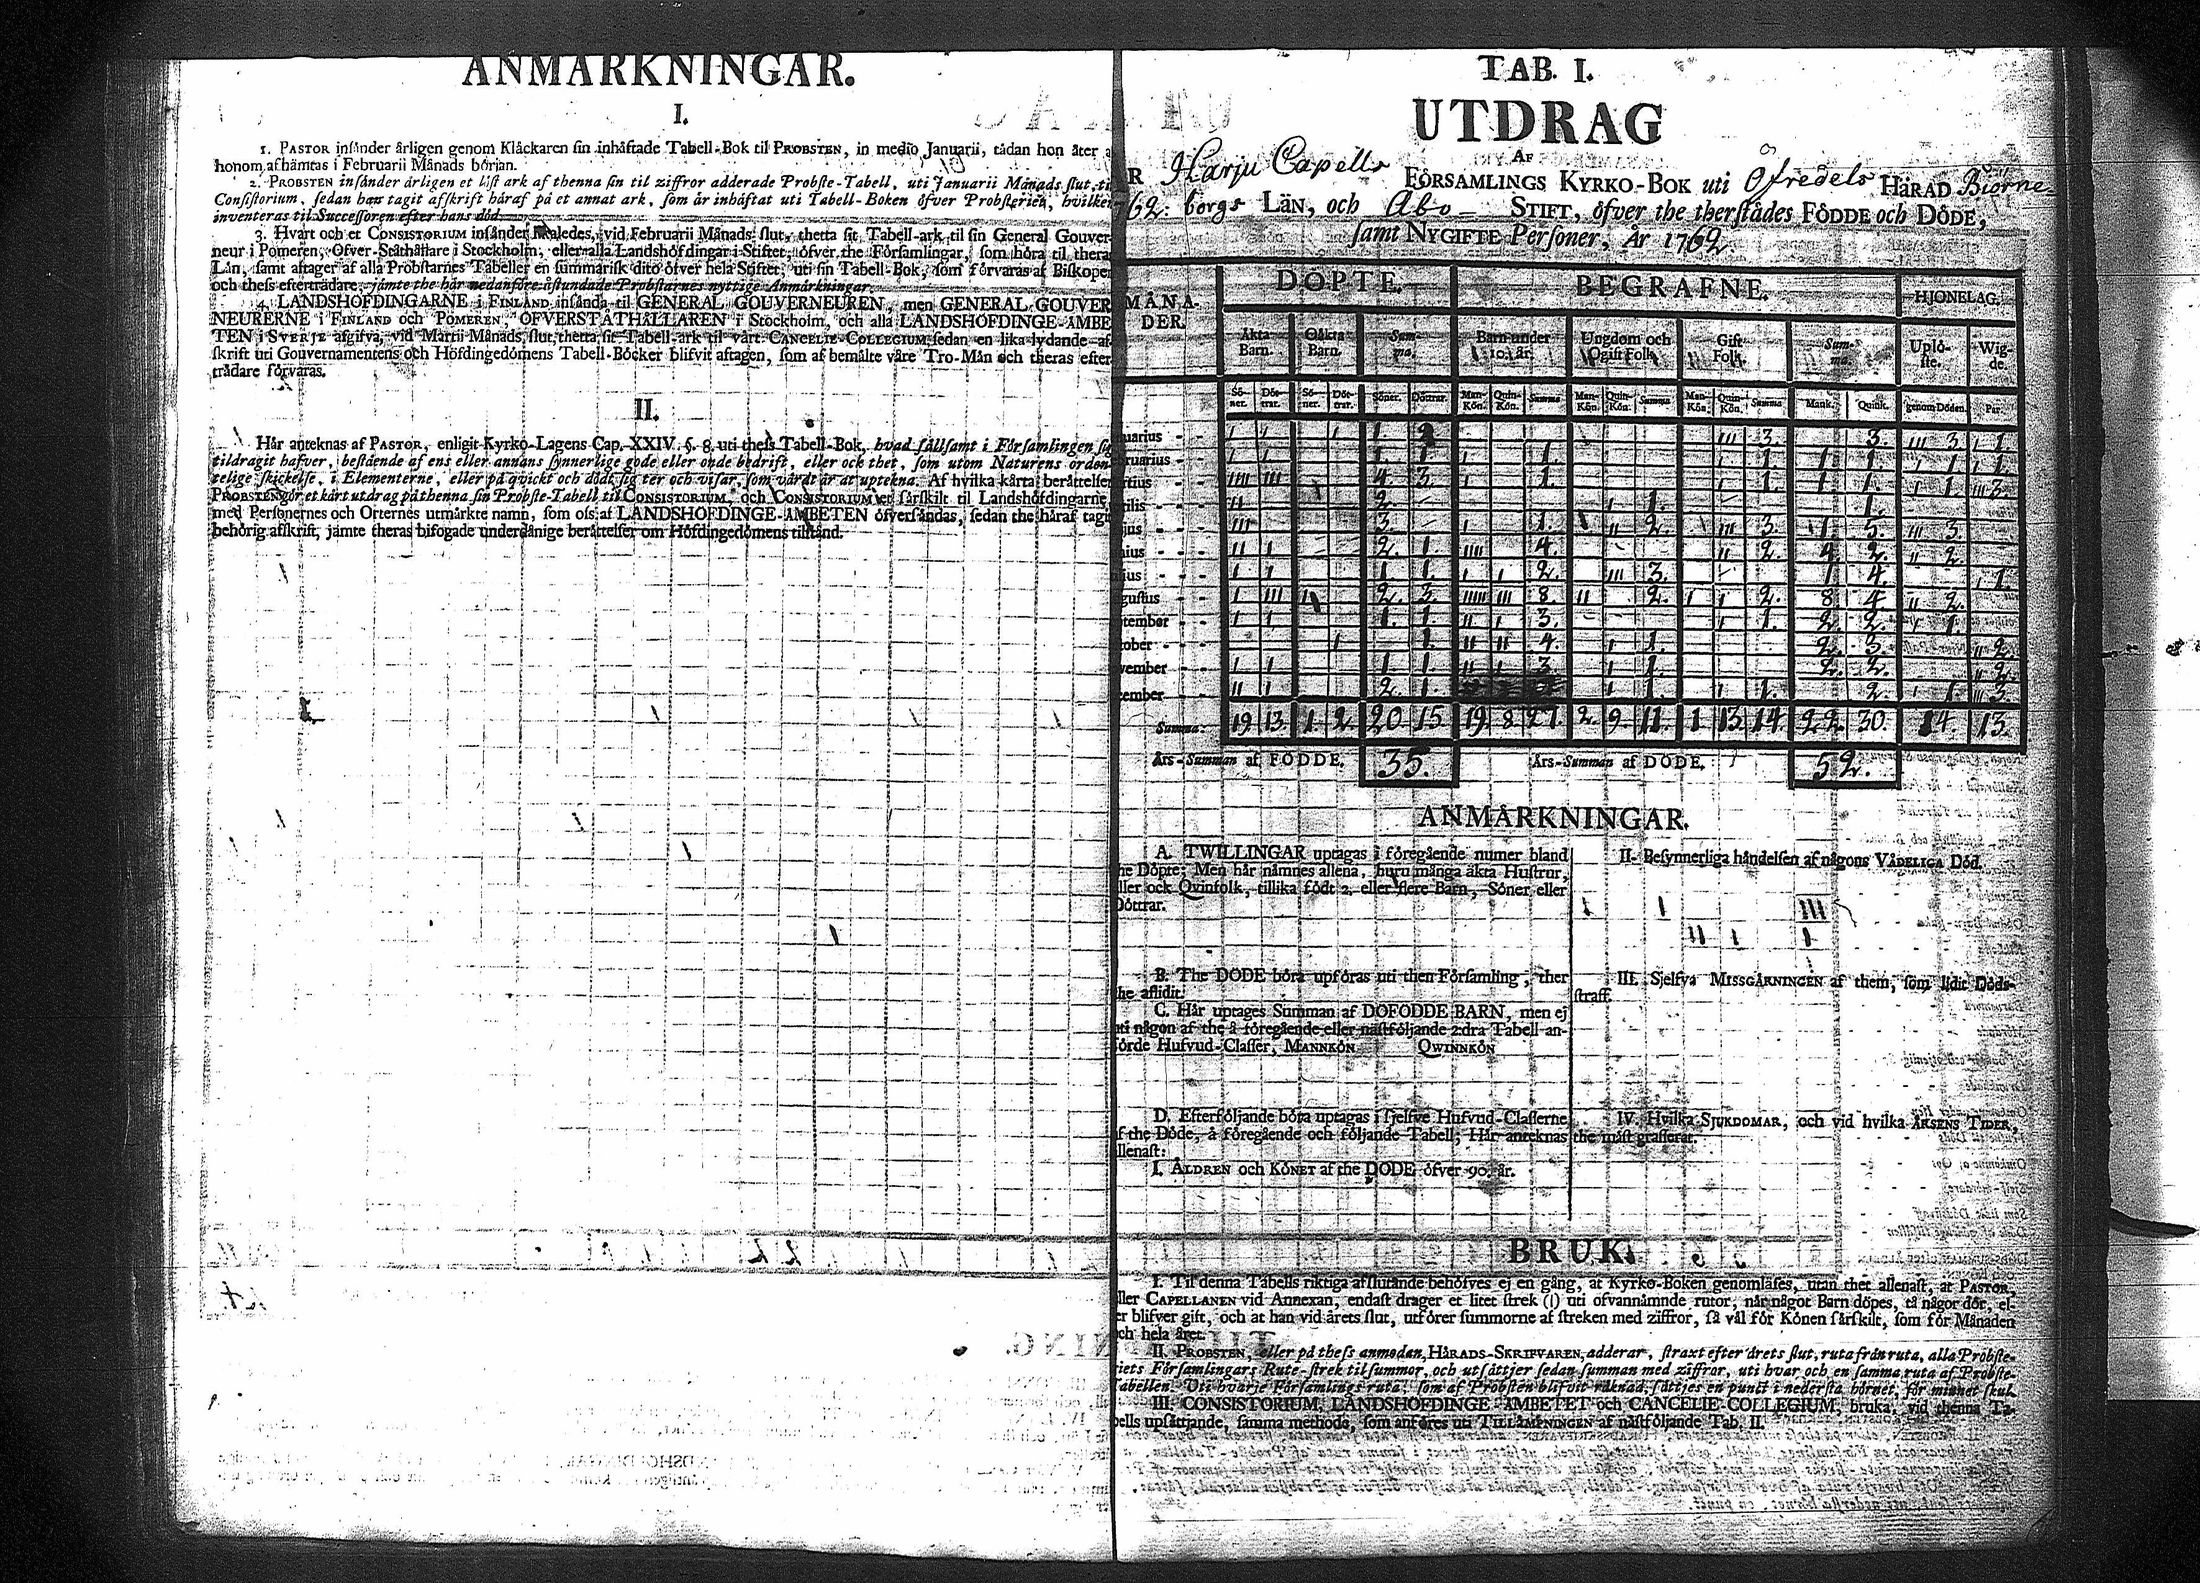 ANMÄRKNINGAR.
I.
1. PASTOR insänder årligen genom Klåckaren sin inhäftade Tabell-Bok til PROBSTEN, in medio Januarii, tådan hon åter
honom afhämtas i Februarii Månads början.
2. PROBSTEN insänder årligen et löst ark af thenna sin til ziffror adderade Probste-Tabell, uti Januarii Månads slut, til
Consistorium, sedan han tagit afskrift häraf på et annat ark, som är inhäftat uti Tabell-Boken öfver Probsteriet, hvilken
inventeras til Successoren efter hans död.
3. Hvart och et CONSISTORIUM insänder likaledes, vid Februarii Månads slut, thetta sit Tabell-ark til sin General Gouver-
neur i Pomeren, Öfver-Ståthållare i Stockholm, eller alla Landshöfdingar i Stiftet, öfver the Församlingar, som höra til thera
Län, samt aftager af alla Probstarnes Tabeller en summarisk dito öfver hela Stiftet, uti sin Tabell-Bok, som förvaras af Biskopen
och thess efterträdare, jämte the här nedanföre åstundade Probstarnes nyttige Anmärkningar.
4. LANDSHÖFDINGARNE i FINLAND insända til GENERAL GOUVERNEUREN, men GENERAL GOUVER
NEURERNE i FINLAND och POMEREN, ÖFVERSTÅTHÅLLAREN i Stockholm, och alla LANDSHÖFDINGE-ÄMBE
TEN i SVERJE afgifva, vid Martii Månads slut, thetta sit Tabell-ark til vårt CANCELIE-COLLEGIUM, sedan en lika lydande af-
skrift uti Gouvernamentens och Höfdingedömens Tabell-Böcker blifvit aftagen, som af bemälte våre Tro-Män och theras efter
trädare förvaras.
II.
Här anteknas af PASTOR, enligit Kyrko-Lagens Cap. XXIV. §. 8. uti thess Tabell-Bok, hvad sällsamt i Församlingen sig
tildragit hafver, bestående af ens eller annans synnerlige gode eller onde bedrift, eller ock thet, som utom Naturens orden
telige skickelse, i Elementerne, eller på qvickt och dödt sig ter och visar, som värdt är at uptekna. Af hvilka kårta berättelser
PROBSTEN gör et kårt utdrag på thenna sin Probste-Tabell til CONSISTORIUM, och CONSISTORIUM et särskilt til Landshöfdingarne,
med Personernes och Orternes utmärkte namn, som oss af LANDSHÖFDINGE-ÄMBETEN öfversändas, sedan the häraf tagit
behörig afskrift, jämte theras bifogade underdånige berättelser om Höfdingedömens tilstånd.
TAB. I.
UTDRAG
AF
R Harju Capells FÖRSAMLINGS KYRKO-BOK uti Öfredels HÄRAD Biörne-
62. borgs LÄN, och Åbo STIFT, öfver the therstädes FÖDDE och DÖDE,
samt NYGIFTE Personer, År 1762.
MÅNA-
DER.
DÖPTE. BEGRAFNE. HJONELAG.
Äkta Barn. Oäkta Barn. Summa. Barn under 10. år. Ungdom och Ogift Folk. Gift Folk. Summa. Uplöste. Wigde.
Söner. Döttrar. Söner. Döttrar. Söner. Döttrar. Mankön. Quinkön. Summa Mankön. Quinkön. Summa Mankön. Quinkön. Summa Mank. Quink. genom Döden. Par.
uarius - - I I 1. 2 III 3. 3. III 3. I 1.
ruarius - - I I 1. 1. I 1. I 1. 1. 1. I 1. I 1.
rtius - - IIII III 4. 3. I 1. I 1. 1. 1. I 1. III 3.
rilis - - II 2. I 1. 1.
jus - - III 3. I 1. II 2. III 3. 1. 5. III 3.
nius - - II I 2. 1. IIII 4. II 2. 4. 2. II 2.
lius - - - I I 1. 1. I I 2. III 3. 1. 4. I 1.
gustus - - I III I 2. 3. IIIII III 8. II 2. I I 2. 8. 4. II 2.
tember - - I I 1. 1. II I 3. I 1. 2. 2. I 1.
tober - - I 1. II II 4. I 1. 2. 3. II 2.
vember - - I I 1. 1. II I 3. I 1. 2. 2. II 2.
cember - - II I 2. 1. I 1. I 1. 2. I 1. III 3.
Summa. 19. 13. 1. 2 20. 15. 19. 8. 27. 2. 9. 11. 1. 13. 14. 22. 30. 14. 13.
Års-Summan af FÖDDE. 35. Års-Summan af DÖDE. 52.
ANMÄRKNINGAR.
A. TWILLINGAR uptagas i föregående numer bland
he Döpte; Men här nämnes allena, huru många äkta Hustrur,
ller ock Qvinfolk, tillika födt 2. eller flere Barn, Söner eller
Döttrar.
B. The DÖDE böra upföras uti then Församling, ther
he aflidit.
C. Här uptages Summan af DÖFÖDDE BARN, men ej
uti någon af the å föregående eller nästföljande 2:dra Tabell an-
förde Hufvud-Classer, MANNKÖN QWINNKÖN
D. Efterföljande böra uptagas i sjelfve Hufvud-Classerne
f the Döde, å föregående och följande Tabell; Här anteknas
llenast:
I. ÅLDREN och KÖNET af the DÖDE öfver 90. år.
II. Besynnerliga händelsen af någons VÅDELIGA Död.
III. Sjelfva MISSGÄRNINGEN af them, som lidit Döds-
straff.
IV. Hvilka SJUKDOMAR, och vid hvilka ÅRSENS TIDER,
the mäst grasserat.
BRUK.
I. Til denna Tabells riktiga afslutande behöfves ej en gång, at Kyrko-Boken genomläses, utan thet allenast, at PASTOR,
ller CAPELLANEN vid Annexan, endast drager et litet strek (|) uti ofvannämnde rutor, når något Barn döpes, tå någor dör, el-
er blifver gift, och at han vid årets slut, utförer summorne af streken med ziffror, så väl för Könen särskilt, som för Månaden
ch hela året.
II. PROBSTEN, eller på thess anmodan, HÄRADS-SKRIFVAREN, adderar, straxt efter årets slut, ruta från ruta, alla Probste-
riets Församlingars Rute-strek til summor, och utsättjer sedan summan med ziffror, uti hvar och en samma ruta af Probste-
tabellen. Uti hvarje Församlings ruta, som af Probsten blifvit räknad, sättjes en punct i nedersta hörnet, för minnet skul.
III. CONSISTORIUM, LANDSHÖFDINGE-ÄMBETET och CANCELIE-COLLEGIUM, bruka, vid thenna Ta-
bells upsättjande, samma methode, som anföres uti TILLÄMPNINGEN af nästföljande Tab. II.